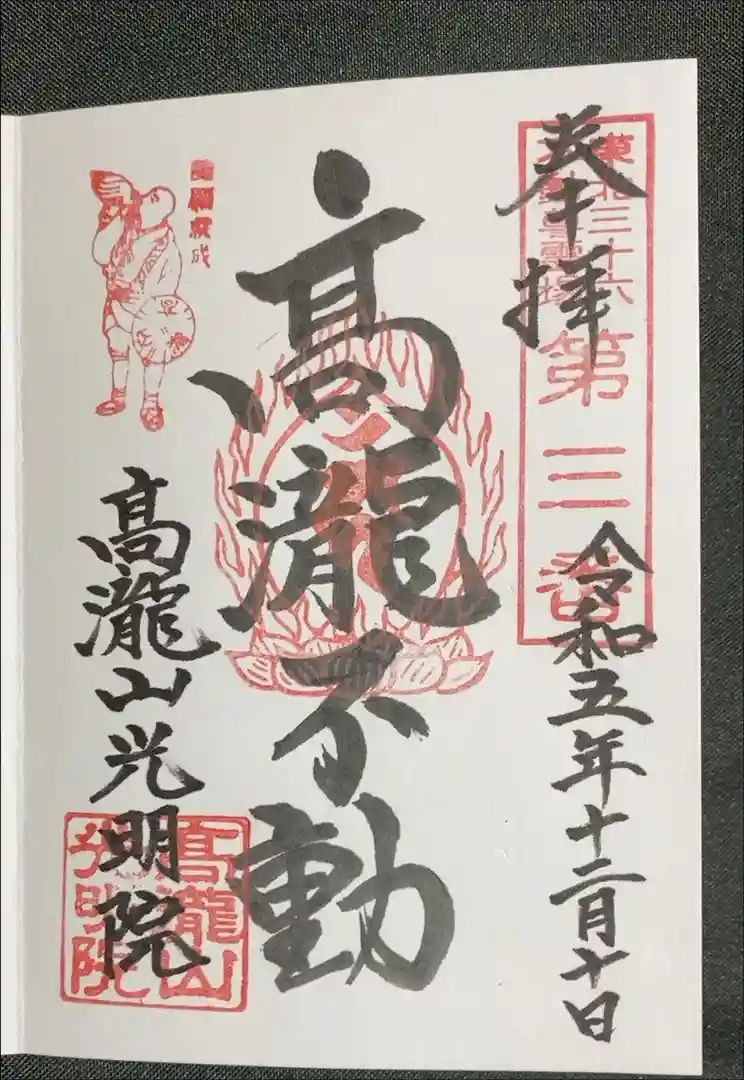 奉拝
東北三十六
不動尊霊場
第三番
令和五年十二月十日
高瀧不動
諸願成就
高瀧山光明院
高瀧山
光明院